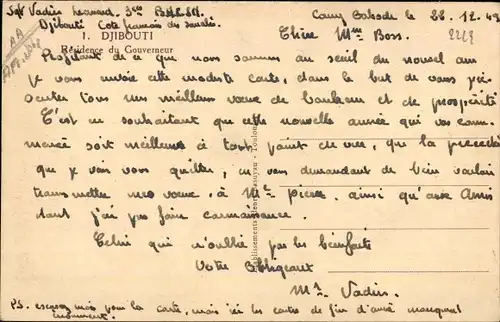 Vadin
Camp Gabode le 28.12.49
Djibouti Cote française des somalis
1. DJIBOUTI
Résidence du Gouverneur
Chère Mme Boss.
2213
Profitant de ce que nous sommes au seuil du nouvel ans
je vous envoie cette modeste carte, dans le but de vous pré-
senter tous mes meilleurs vœux de bonheur et de prospérité
C'est en souhaitant que cette nouvelle année qui vas comm-
mencée soit meilleure à tout point de vue, que la précédente
que je vais vous quitter, en vous demandant de bien vouloir
transmettre mes vœux, à Mr Pierre ainsi qu'aux Amis
dont j'ai pu faire connaissance.
Celui qui n'oublie pas les bienfaits
Votre Obligeaux
Mr Vadin.
P.S. excusez moi pour la carte, mais ici les cartes de fin d'année manquent
énormément.
Toulon